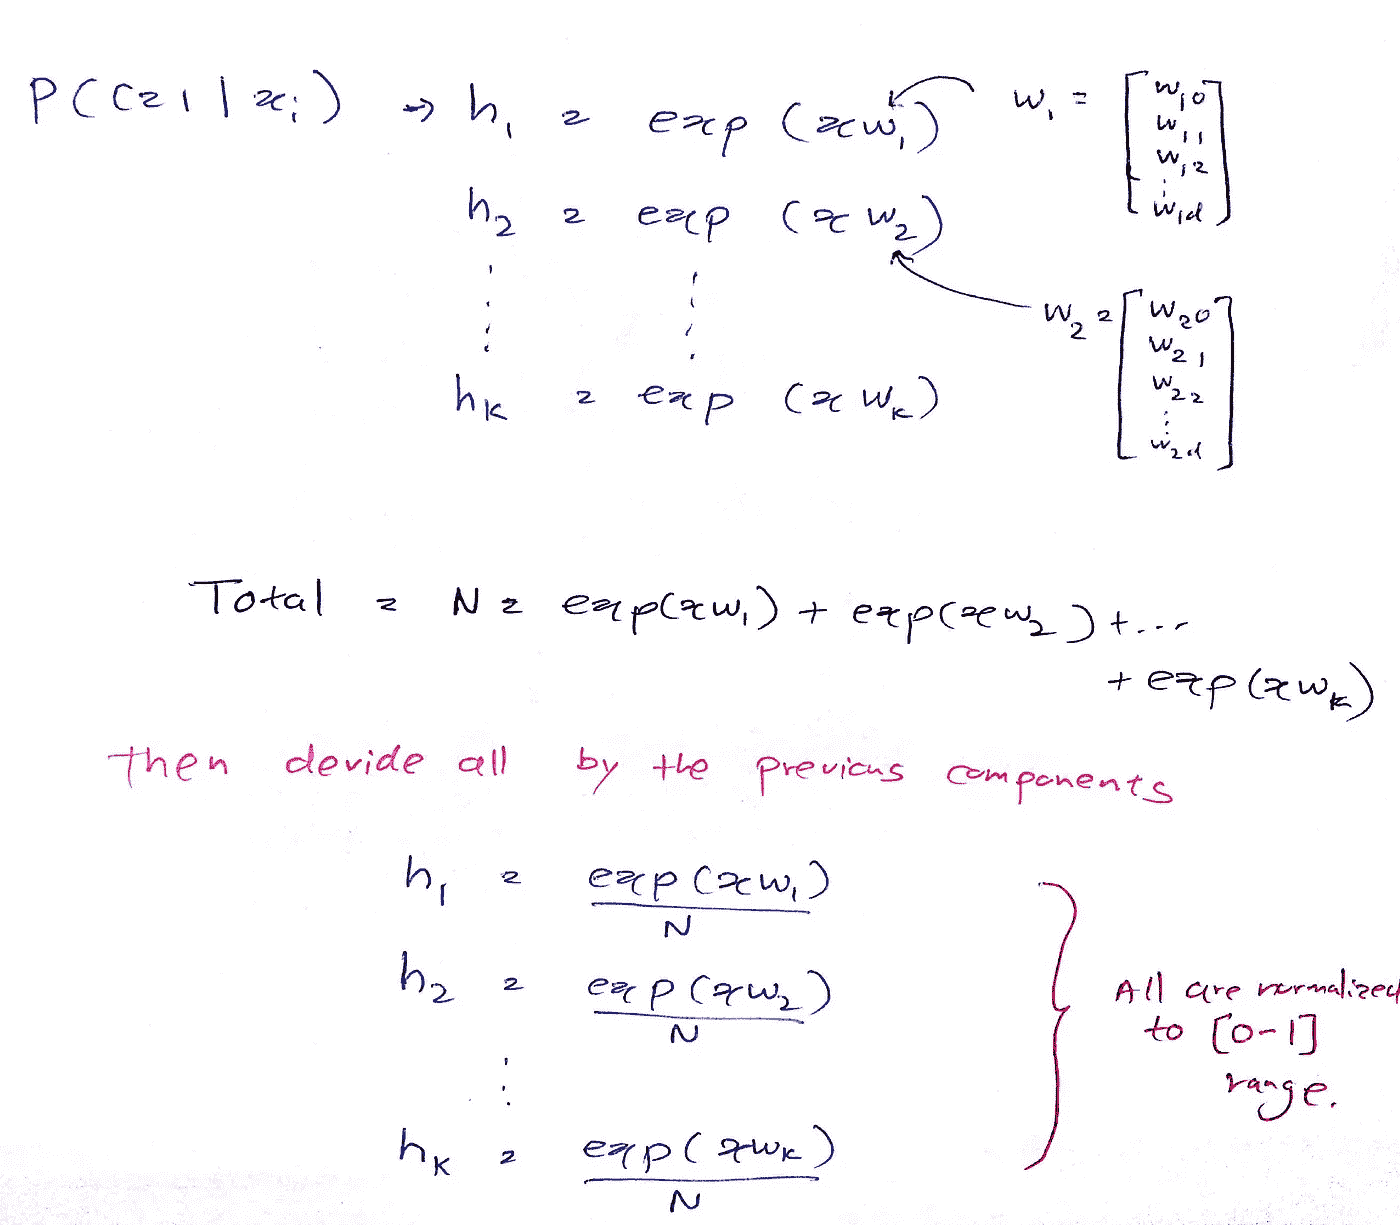 P(C=1|xᵢ) → h₁ = exp(xw₁)
w₁ = [w₁₀ w₁₁ w₁₂ ⋮ w₁d]
h₂ = exp(xw₂)
⋮ ⋮
w₂ = [w₂₀ w₂₁ w₂₂ ⋮ w₂d]
hₖ = exp(xwₖ)
Total = N = exp(xw₁) + exp(xw₂) + ...
+ exp(xwₖ)
then devide all by the previous components
h₁ = exp(xw₁) / N
h₂ = exp(xw₂) / N
⋮
hₖ = exp(xwₖ) / N
All are normalized
to [0-1]
range.